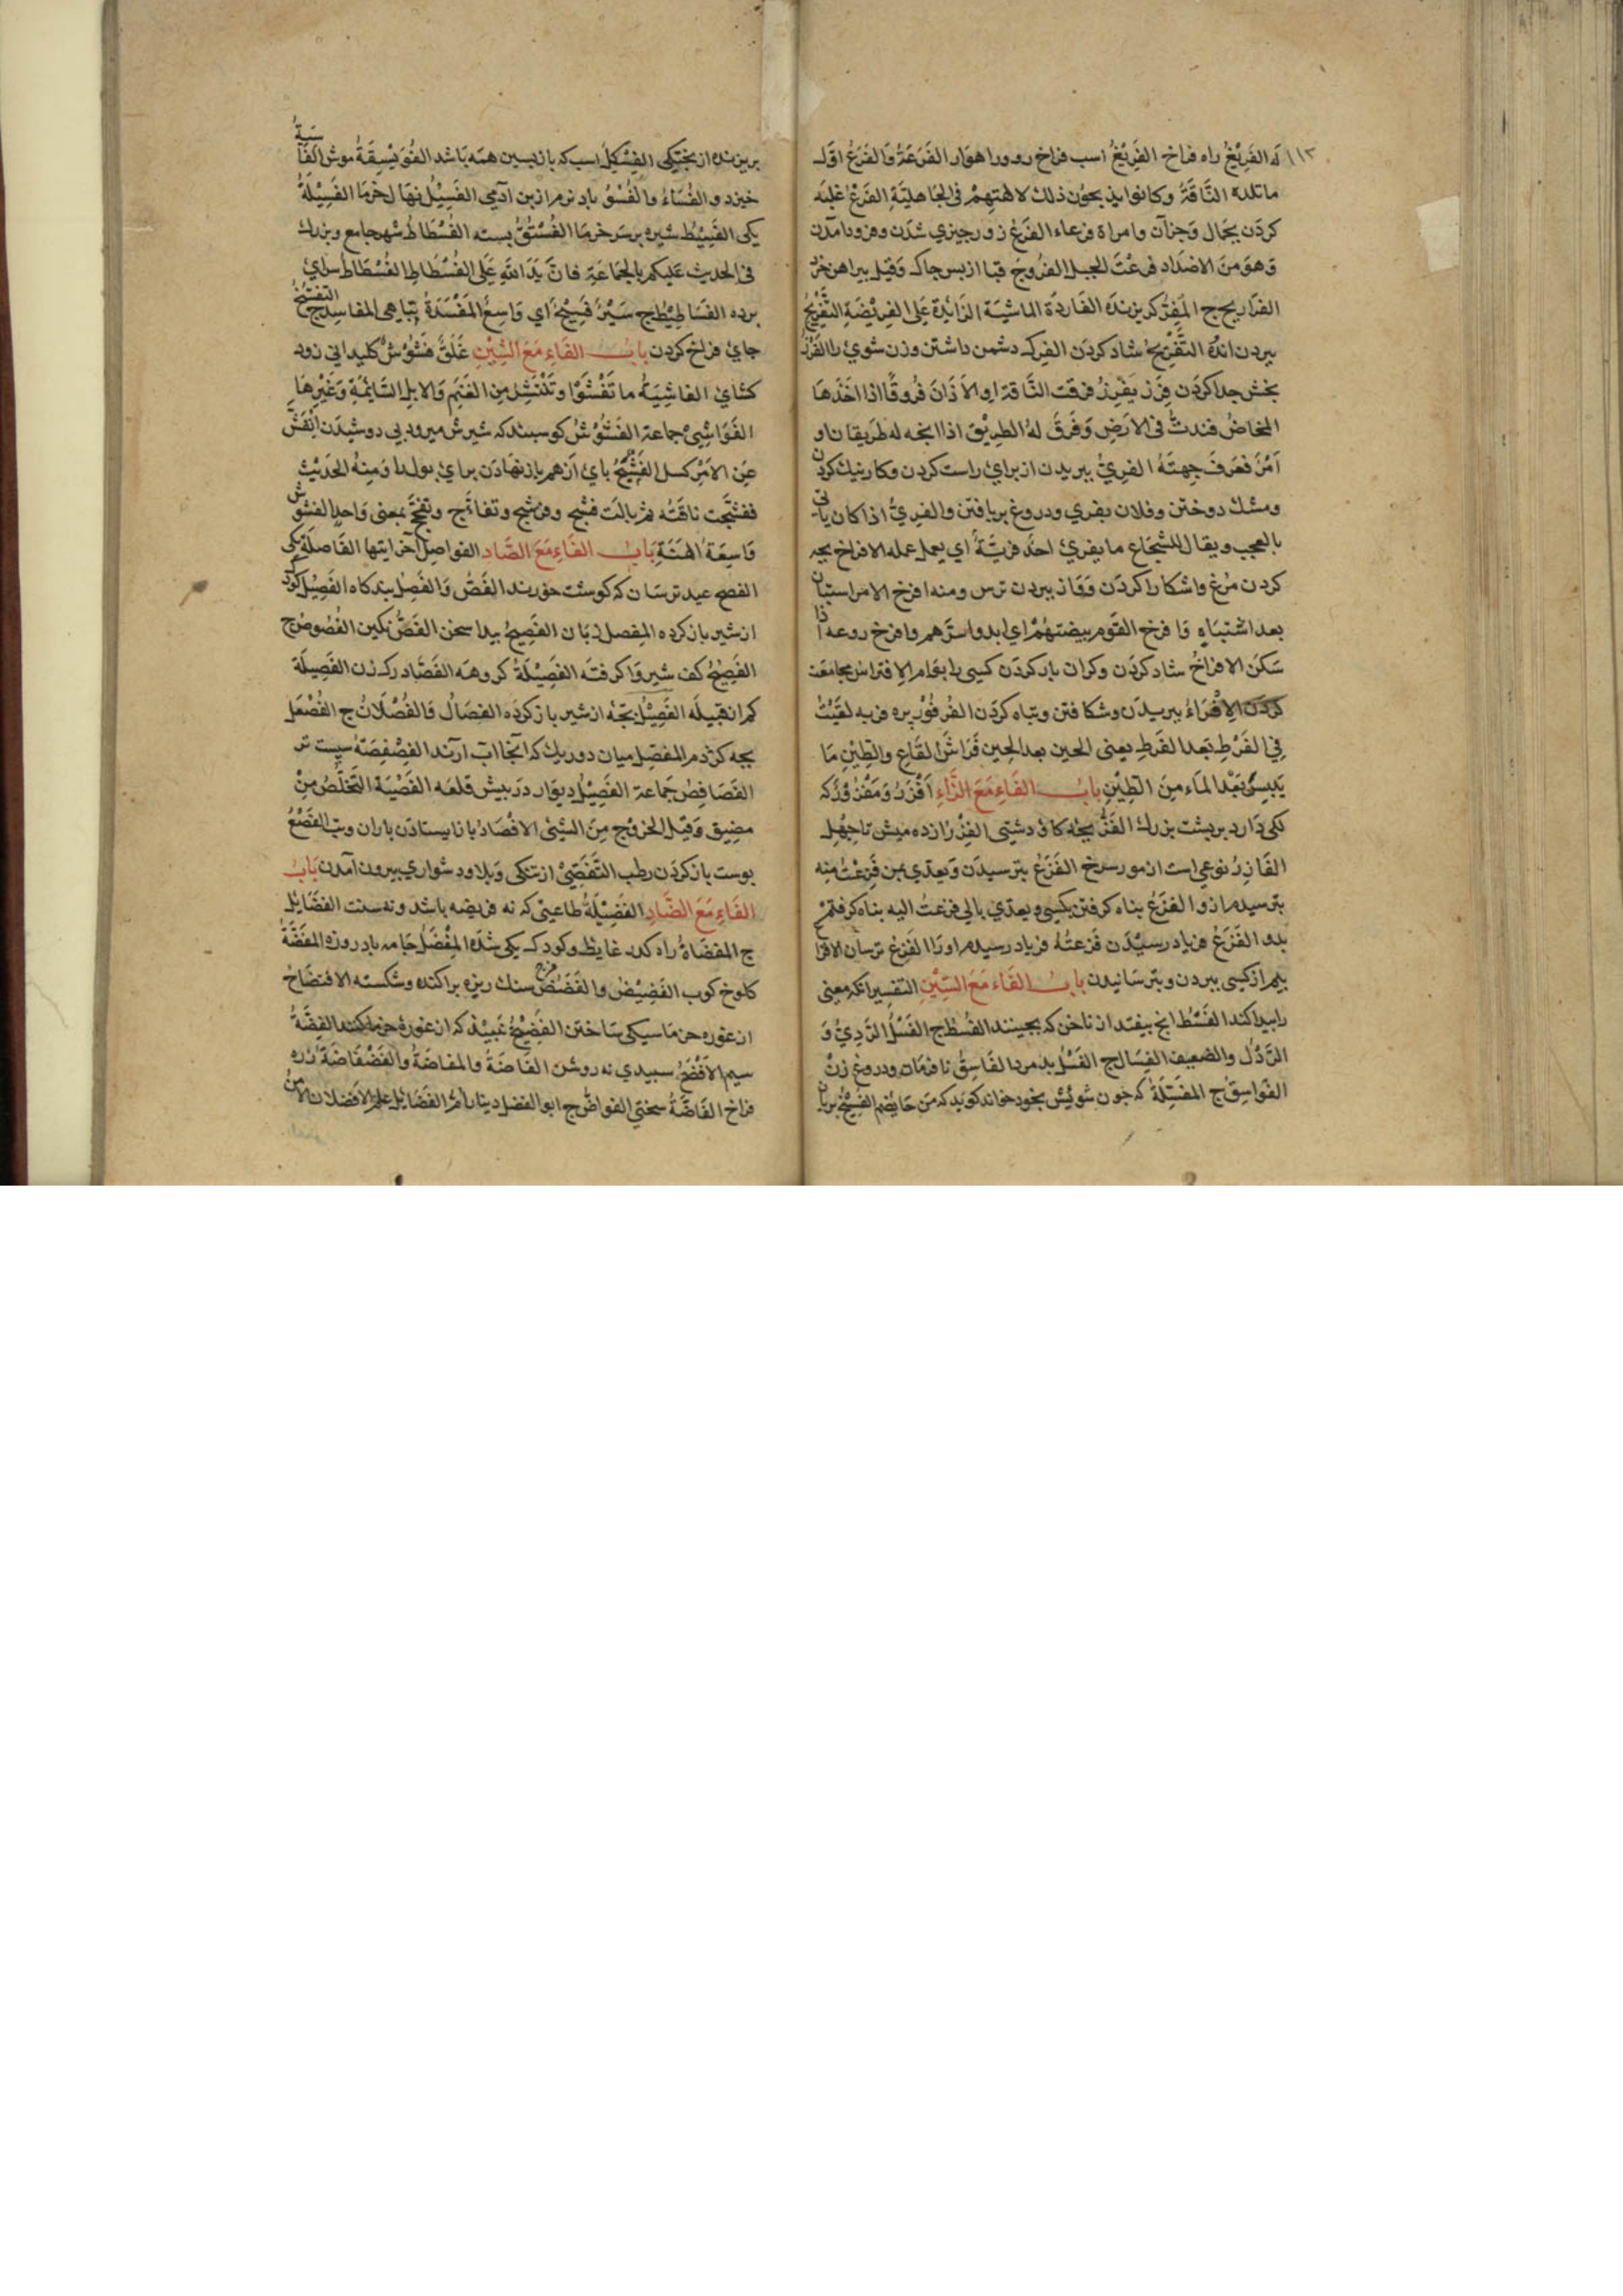 ١١٣
له الفَرِيْغُ راه فراخ الفَرِيْغُ اسب فراخ رو و راهوار الفَرَعَةُ وَالفَرَعُ اوّل
ماتلده النَّاقَةُ وكانوا يذبحُون ذلك لالهتِهِمْ فى الجَاهليَّةِ الفَرْعُ غلبَه
كردَن بجَمال وَجزآن وامراة فرعاء الفَرْغ زورجيزي شدَن وفرودامدَن
وَهوَ مِنَ الاضدَاد فرعْتَ الجبل الفرُّوجُ قبا از پس جاك وَقيل پيراهن خرد
الفرَاريج ج المَفِرُّ كريزنده الفَاردَة الماشيَة الزَّائِدة عَلى الفرِيْضَةِ التَّفْرِيْجُ
ببردن اندُه التَّفْرِيحُ شاد كردَن الفِرك دشمن داشتن وزن شوي را الفَرْزُ
بخش جدا كردَن فَرَز يَفْرِزُ فرقت النَّاقة او الاَتَانَ فُروقًا اذا اخَذهَا
المخاضُ فندتْ فى الارَضِ وَفَرَقَ لهُ الطرِيْق اذا اتجه له طريقان او
اَمْرٌ فعَرَفَ جِهتَهُ الفرِيُّ ببريدن از براي راست كردن وكار نيك كردن
ومشك دوختن وفلان يفري ودروغ بربافتن والفرِيُّ اذا كان ياتى
بالعجب ويقال للشّجَاع ما يفرِئ احدٌ فرِيَّهُ اي يعمل عمله الافراخ بجه
كردن مُرغ واشكارا كردَن وَوَاز ببردن ترس ومنه افرخ الامر استبان
بعد اشتبَاهٍ وَافرخ القوم بيضتهُمْ اي ابدوا سِرَّهم وافرخ روعه اذا
سَكنَ الافراحُ شاد كردَن وكران بار كردَن كسى را بوَام الافتراس مجامَعَت
كردَن الاِفْرَاءُ ببريدَن وشكافتن وتباه كردَن الفرفُوْر بره فربه لقيْتُهُ
فِي الفَرْطِ بَعدَ الفَرطِ يعنى الحين بعد الحِين فَرَاشُ القَاع والطِيْنِ مَا
يَلبسُ بَعْدَ الماَء مِنَ الطِيْنِ بابُ الفَاءِ مَعَ الزَّاءِ اَفْزَرُ وَمَفْزُوْرٌ كه
ككى دَارد بر پشت بزرك الفَزُّ بجهٔ كاو دشتى الفِزْرُ از ده ميش تا جهل
الفَازِرُ نوعى است از مور سرخ الفَزَعُ بترسيدَن وَيعدي بمن فَزِعتُ منه
بترسيدم ازو الفزَعُ پناه كرفتن بكسى ويعدّي بالى فزعتُ اليه پناه كرفتم
بدو الفَزَعُ فرياد رسيْدَن فَزعتُهُ فرياد رسيدم اورا الفَزِعُ ترسان الافزاع
بيم از كسى ببردن وبترسانيدن بابُ الفَاءِ مَعَ السِّيْنِ التفسير انكه معنى
را پيدا كند الفَسْطُ انج بيفتد از ناخن كه بجينند الفسُط ج الفَسْلُ الرَّدِيُّ وَ
الرَّذْل والضعيف الفِسَال ج الفَسْل بد مرد الفَاسِقُ نافرمان ودروغ زن
الفَواسِقُ ج المفَسِلَةُ كه جون شويش بخود خواند كويد كه من حايضم الفَسِيْخُ بريان
بريزنده از بختكى الفِسْكِلُ اسب كه بازپسين همه بَاشد الفُوَيْسِقَةُ موش الفَاسِيَةُ
خيزدو الفُسَاءُ والفُسُوُّ باد نرم از بن آدمى الفَسِيْلُ نهال خرما الفَسِيْلَةُ
يكى الفَسِيْط شيره برسَر خرمَا الفُسْتُقُ بسته الفُسْطَاطُ شهر جامع وبزرك
فى الحديث عَليكم بالجمَاعَةِ فانَّ يَدَ اللهِ عَلى الفُسْطاطِ الفُسْطَاطُ سراي
برده الفَسَاطِيْط ج سَيْرٌ فَسِيْحٌ اي وَاسِعٌ المَفْسَدَةُ تباهى المفاسِد ج التفسّحُ
جايْ فراخ كردن بابُ الفَاءِ مَعَ الشِّيْنِ غَلَقٌ فَشُوْشٌ كليدانى زود
كشاي الفاشِيَةُ ما تَفْشُوْا وتَنْتشِرُ مِن الغَنَم وَالابلِ السَّائِمَةِ وَغَيْرهَا
الفَوَاشِىْ جماعة الفَشُوْشُ كوسبند كه شيرش ميرود بى دوشيدَن اَنْفَشَّ
عَنِ الاَمْرِ كسل الفَشْجُ باي ازهم باز نهادَن براي بولدا وَمِنهُ الحَدِيْث
ففشجَت ناقتُه ثم بالَت فشج وفشّج وتفاشج وتفشّج بمعنى وَاحِدٍ الفَشُوْش
وَاسِعَةُ الهَنَةِ بَابُ الفَاءِ مَعَ الصَّادِ الفواصِل آخر آيتها الفَاصلَة يكى
الفصح عيد ترسَان كه كوشت خورند الفَصُّ وَالفَصِلُ بندكاه الفَصِيْل كودك
از شير باز كرده المِفصل زبَان الفَصِيحُ پيدا سخن الفَصُّ نكين الفُصُوصُ ج
الفَصِيْحُ كف شير وَاكرفته الفَصِيْلَةُ كروهه الفَصَّاد رك زن الفَصِيلَة
كم از قبيله الفَصِيْلُ بجّه از شير باز كرده الفصَالُ وَالفُصْلَانُ ج الفُصْعَل
بجه كژدم المفصَل ميان دو ريك كه آنجا آب آرند الفِصْفِصَةُ سپست تر
الفَصَافِصُ جَماعة الفَصِيْلُ ديوَار درَ پيش قلعَه الفَصْيَة التَخلّصُ مِنْ
مضِيق وَقيل الخروُج مِنَ الشّىْئ الافْصَادُ باز ايستادَن باران وتب الفَصْعُ
پوست باز كردَن رطب التَّفَصِّيْ از تنكى وَبلا ودشواري بيرون آمدن بَابُ
الفَاءِ مَعَ الضَّادِ الفَضِيْلَةُ طاعتى كه نه فريضه باشد ونه سنت الفضَايل
ج المفضَاةُ راه كدَر غايظ وكودك يكى شدَه المِفْضَلُ جَامه باد روزه المفَضَّةُ
كلوخ كوب الفَضِيْضُ والفَضَضُ سنك ريزه براكنده وشكسته الافتضَاخُ
از غوره خرما سيكى ساختن الفَضِيْخُ نبيذ كه از غورهٔ خرما كنند الفِضَّةُ
سيم الاَفْضَحُ سبيدي نه روشن الفَاضَةُ والمفَاضَةُ والفَضْفَاضَةُ زره
فراخ الفَاضَّةُ سختى الفواضُّ ج ابو الفضل دينار اُمُّ الفضَايِل علم الاَفضلان الامن